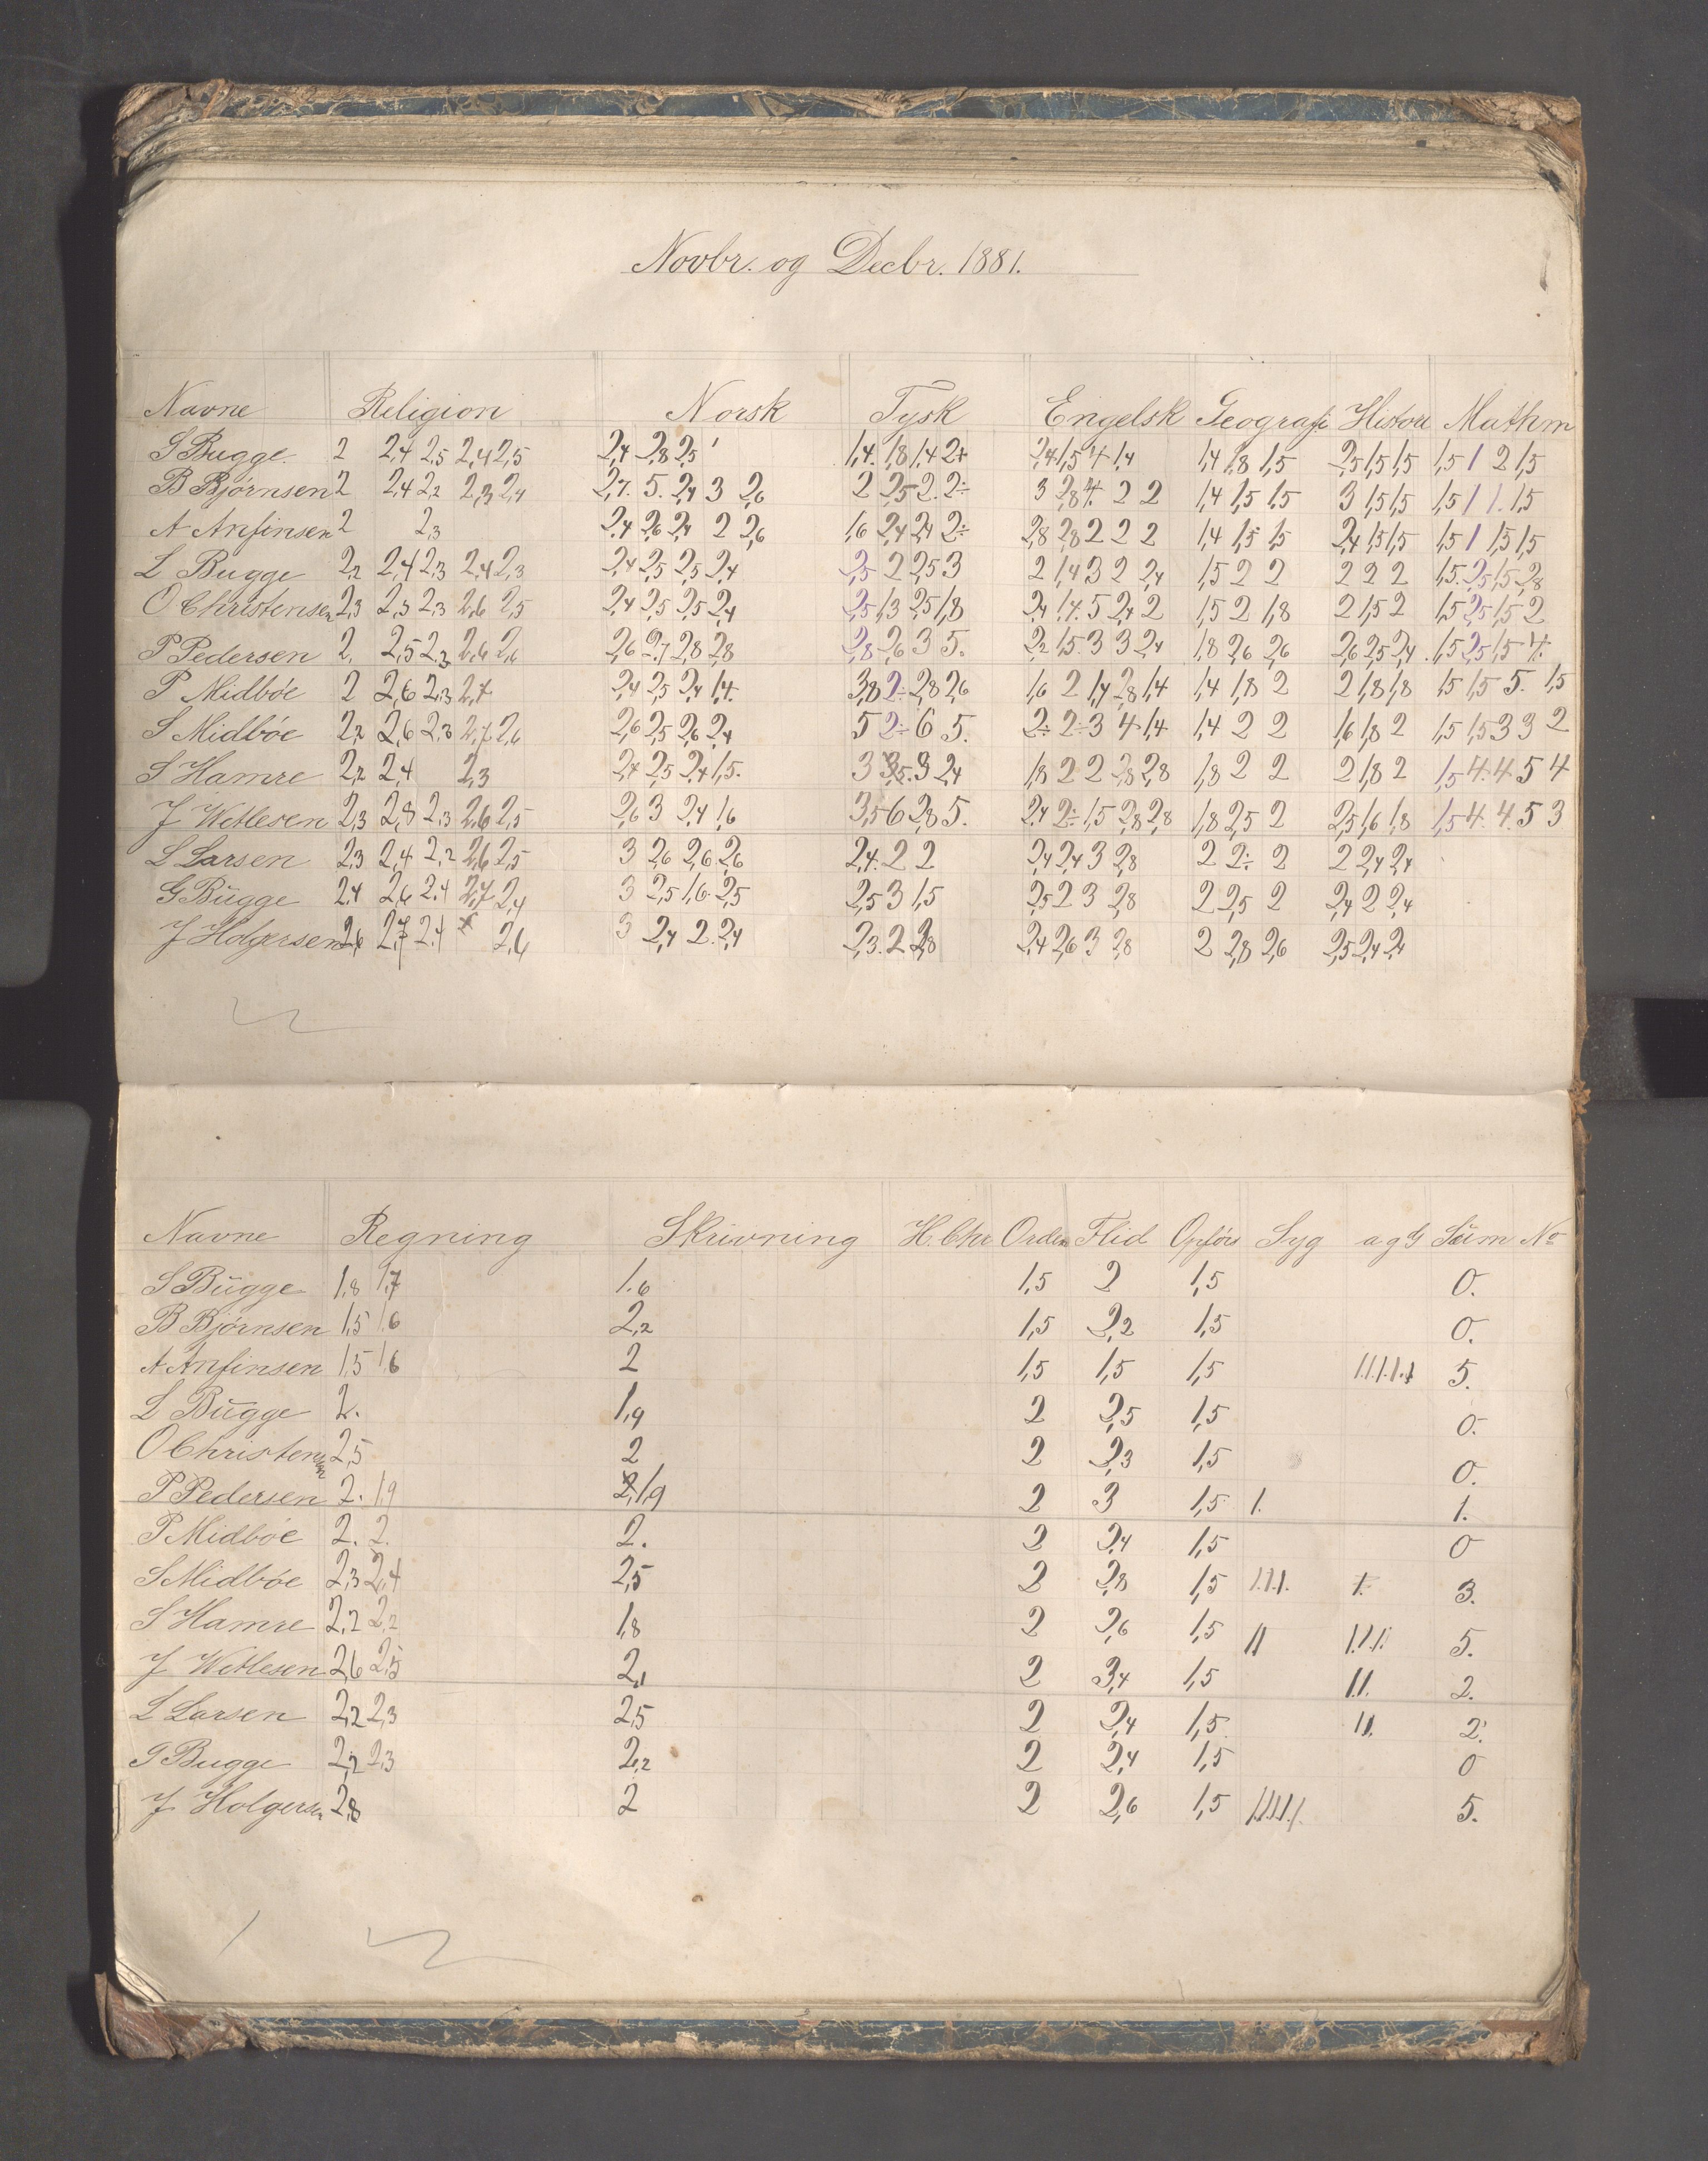 Novbr. og Decbr. 1881.
Navne Religion Norsk Tysk Engelsk Geografi Histori Mathm
S Bugge. 2 2,4 2,5 2,4 2,5 2,4 2,8 2,5 1,4. 1,8 1,4 2+ 2,4 1,5 4 1,4 1,4 1,8 1,5 2,5 1,5 1,5 1,5 1 2 1,5
B Bjørnsen 2 2,4 2,2 2,3 2,4 2,7. 5. 2,4 3 2,6 2 2,5 2. 2÷ 3 2,8 4. 2 2 1,4 1,5 1,5 3 1,5 1,5 1,5 1 1. 1,5
A Anfinsen 2 2,3 2,4 2,6 2,4 2 2,6 1,6 2,4 2,4 2÷ 2,8 2,8 2 2 2 1,4 1,5 1,5 2,4 1,5 1,5 1,5 1 1,5 1,5
L Bugge 2,2 2,4 2,3 2,4 2,3 2,4 2,5 2,5 2,4 2,5 2 2,5 3 2 1,4 3 2 2,4 1,5 2 2 2 2 2 1,5. 2,5 1,5 2,8
O Christensen 2,3 2,3 2,3 2,6 2,5 2,4 2,5 2,5 2,4 2,5 1,3 2,5 1,8 2,4 1,4. 5 2,4 2 1,5 2 1,8 2 1,5 2 1,5 2,5 1,5 2
P Pedersen 2. 2,5 2,3 2,6 2,6 2,6 2,7 2,8 2,8 2,8 2,6 3 5. 2,2 1,5. 3 3 2,4 1,8 2,6 2,6 2,6 2,5 2,4 1,5 2,5 1,5 4.
P Midbøe 2 2,6 2,3 2,7 2,4 2,5 2,4 1,4. 3,8 2÷ 2,8 2,6 1,6 2 1,4 2,8 1,4 1,4 1,8 2 2 1,8 1,8 1,5 1,5 5. 1,5
S Midbøe 2,2 2,6 2,3 2,7 2,6 2,6 2,5 2,6 2,4 5 2÷ 6 5. 2÷ 2÷ 3 4 1,4 1,4 2 2 1,6 1,8 2 1,5 1,5 3 3 2
S Hamre 2,2 2,4 2,3 2,4 2,5 2,4 1,5. 3 3,5. 3 2,4 1,8 2 2 2,8 2,8 1,8 2 2 2 1,8 2 1,5 4. 4 5 4
J Wetlesen 2,3 2,8 2,3 2,6 2,5 2,6 3 2,4 1,6 3,5 6 2,8 5. 2,4 2÷ 1,5 2,8 2,8 1,8 2,5 2 2,5 1,6 1,8 1,5 4. 4. 5 3
L Larsen 2,3 2,4 2,2 2,6 2,5 3 2,6 2,6 2,6 2,4. 2 2 2,4 2,4 3 2,8 2 2÷ 2 2 2,4 2,4
G Bugge 2,4 2,6 2,4 2,7 2,4 3 2,5 1,6 2,5 2,5 3 1,5 2,5 2 3 2,8 2 2,5 2 2,4 2 2,4
J Holgersen 2,6 2,7 2,4 2,6 3 2,4 2. 2,4 2,3. 2 2,8 2,4 2,6 3 2,8 2 2,8 2,6 2,5 2,4 2,4
Navne Regning Skrivning H.Chr Orden Flid Opførs Syg a g G Sum No
S Bugge 1,8 1,7 1.6 1,5 2 1,5 0.
B Bjørnsen 1,5 1,6 2,2 1,5 2,2 1,5 0.
A Anfinsen 1,5 1,6 2 1,5 1,5 1,5 1.1.1.1.1 5.
L Bugge 2. 1,9 2 2,5 1,5 0.
O Christensen 2,5 2 2 2,3 1,5 0.
P Pedersen 2. 1,9 2, 1,9 2 3 1,5 1. 1.
P Midbøe 2. 2. 2. 2 2,4 1,5 0
S Midbøe 2,3 2,4 2,5 2 2,8 1,5 1.1.1. 3.
S Hamre 2,2 2,2 1,8 2 2,6 1,5 11 1.1.1. 5.
J Wetlesen 2,6 2,5 2,1 2 3,4 1,5 1.1. 2.
L Larsen 2,2 2,3 2,5 2 2,4 1,5 11. 2.
G Bugge 2,2 2,3 2,2 2 2,4 1,5 0
J Holgersen 2,8 2 2 2,6 1,5 1.1.1.1.1. 5.